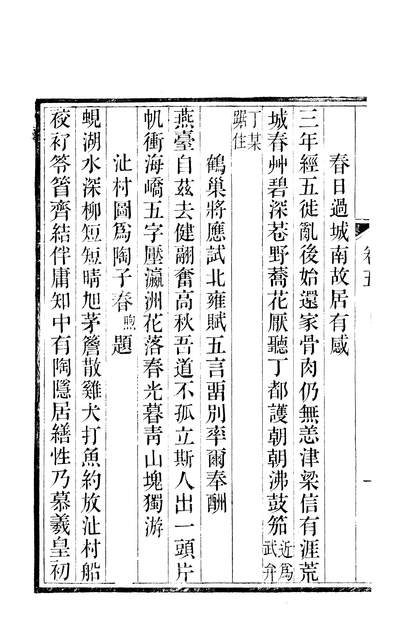 春日過城南故居有感
三年經五徙亂後始還家骨肉仍無恙津梁信有涯荒
城春艸碧深巷野蕎花厭聽丁都護朝朝沸鼓笳近爲武弁
丁某踞住
鶴巢將應試北雍賦五言畱別率爾奉酬
燕臺自茲去健翮奮高秋吾道不孤立斯人出一頭片
帆衝海嶠五字壓瀛洲花落春光暮靑山塊獨游
沚村圖爲陶子春煦題
蜆湖水深柳短短晴旭茅簷散雞犬打魚約放沚村船
衩衦笭箵齊結伴庸知中有陶隱居繕性乃慕羲皇初
卷五